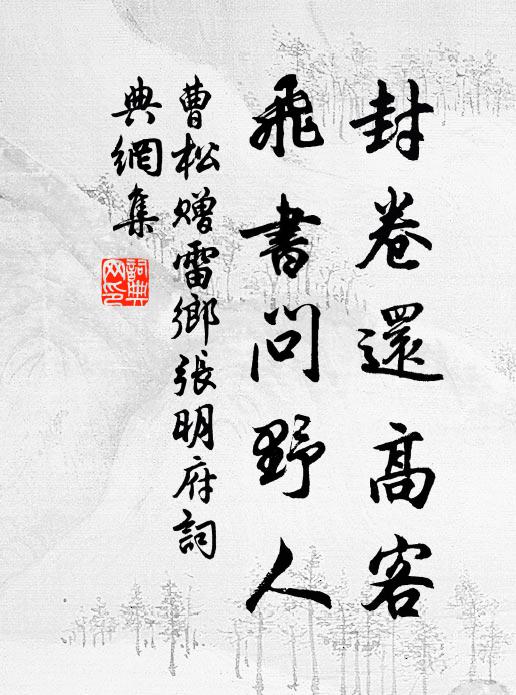 封卷還高客
飛書問野人
曹松贈雷鄉張明府詞
典網集
詞典
网印